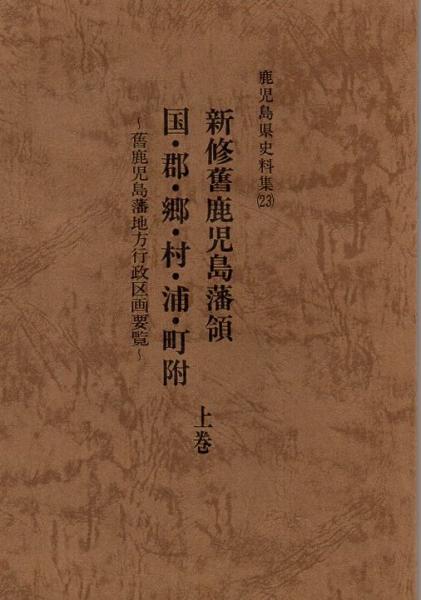 鹿児島県史料集(23)
新修舊鹿児島藩領
国・郡・郷・村・浦・町附
上巻
~舊鹿児島藩地方行政区画要覧~